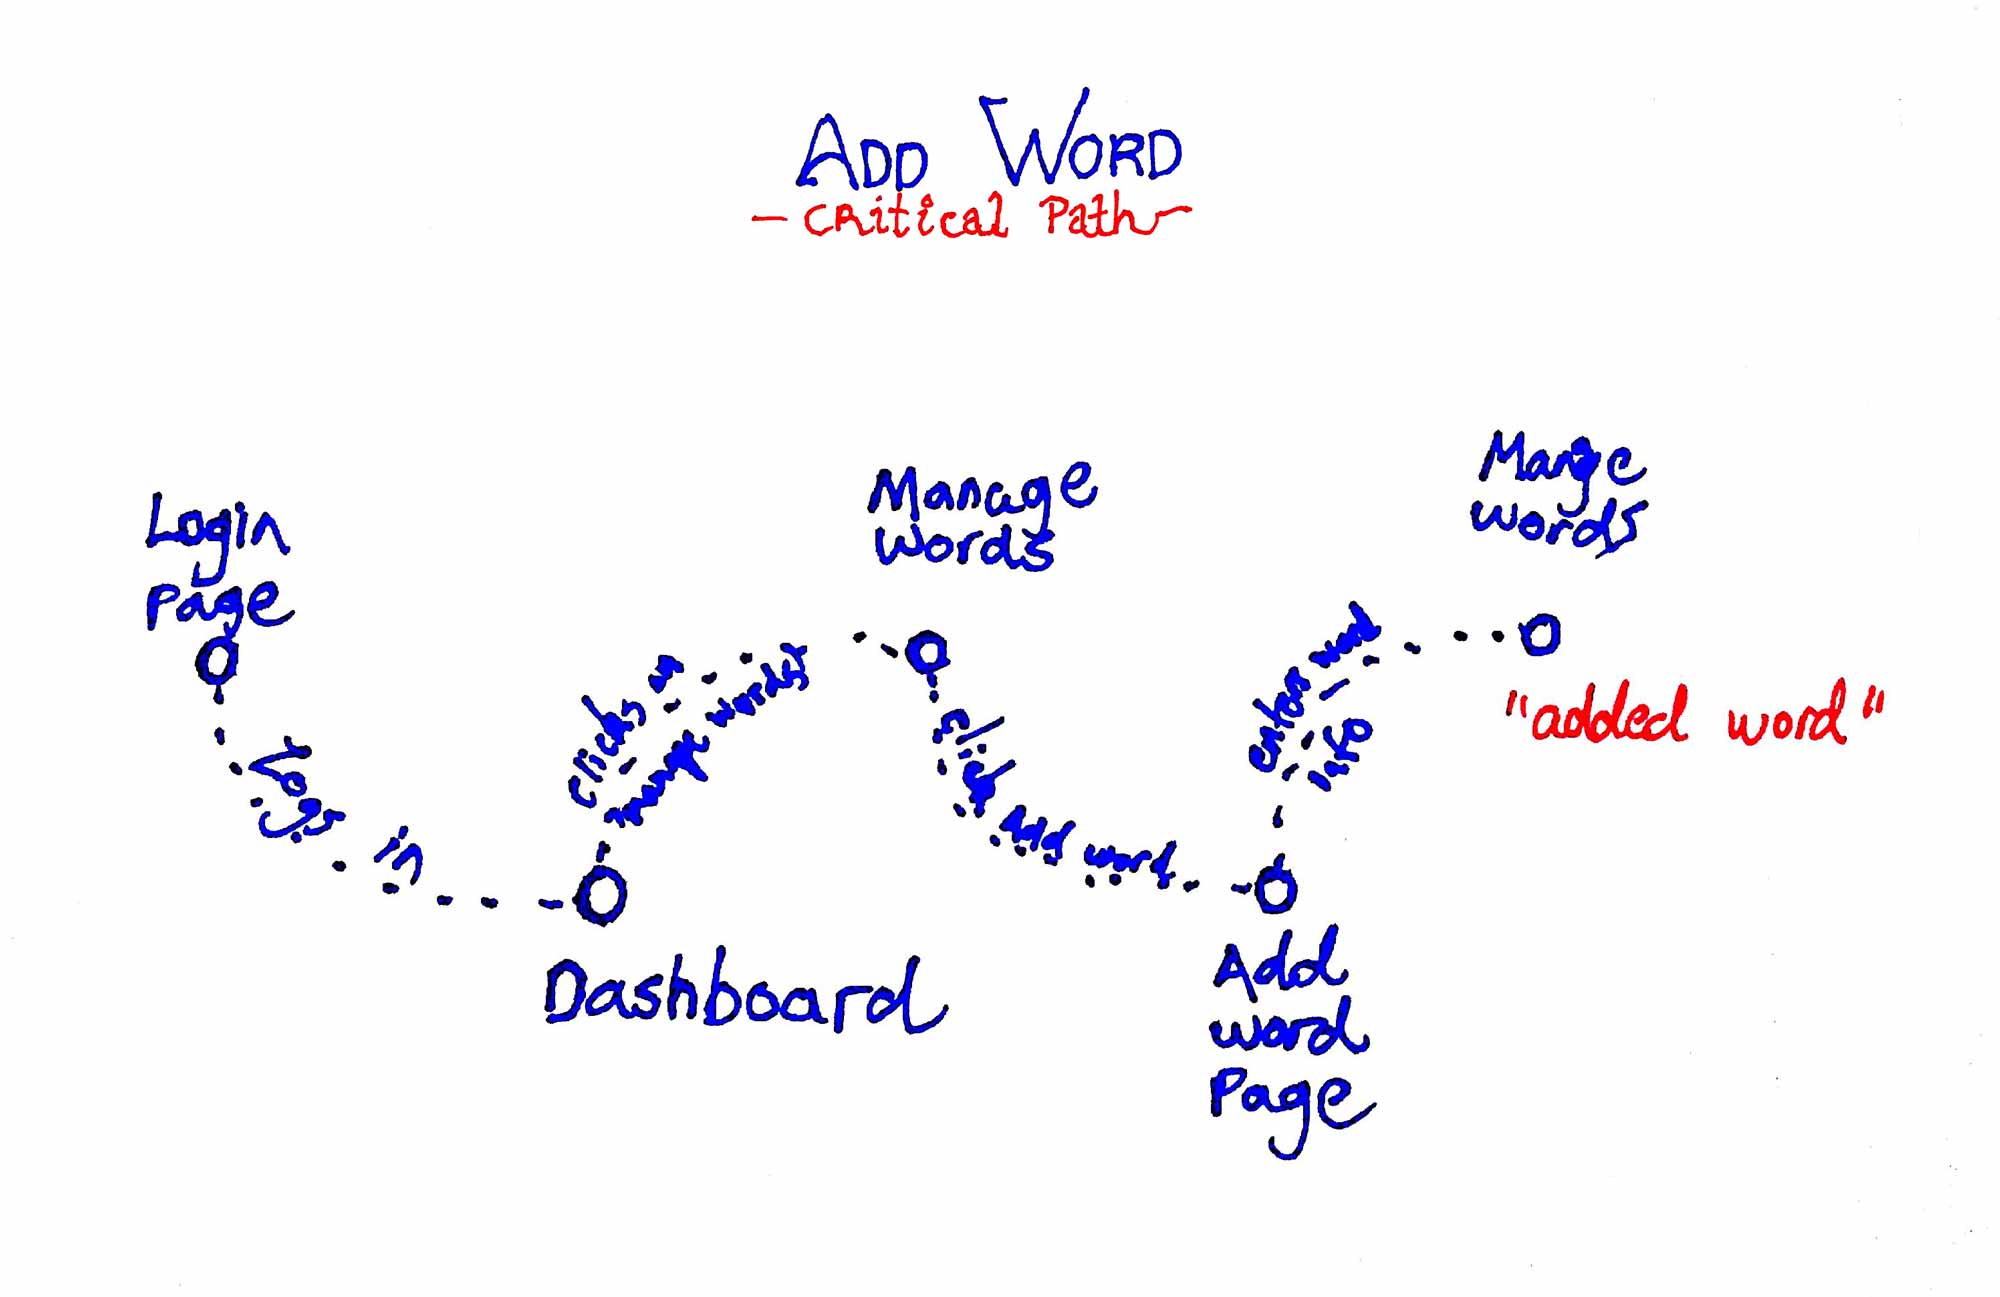 ADD WORD
- CRitical Path -
Login
Page
Logs in
Dashboard
clicks on
manage words
Manage
words
click Add word
Add
word
Page
enters word
info
Mange
words
"added word"